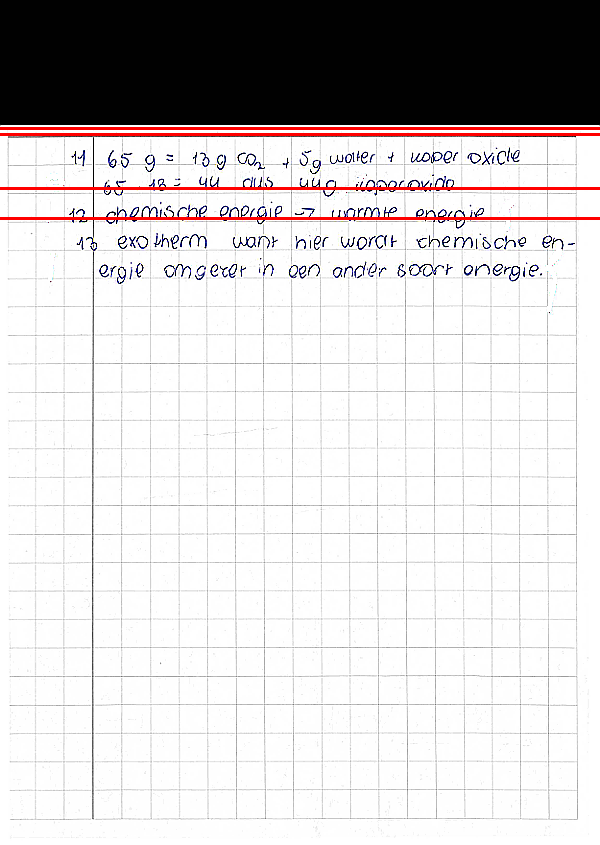 11 65 g = 13 g CO2 + 5g water + koper oxide
65 18 = 44 dus 44g koperoxide
12 chemische energie → warmte energie
13 exotherm want hier wordt chemische en-
ergie omgezet in een ander soort energie.